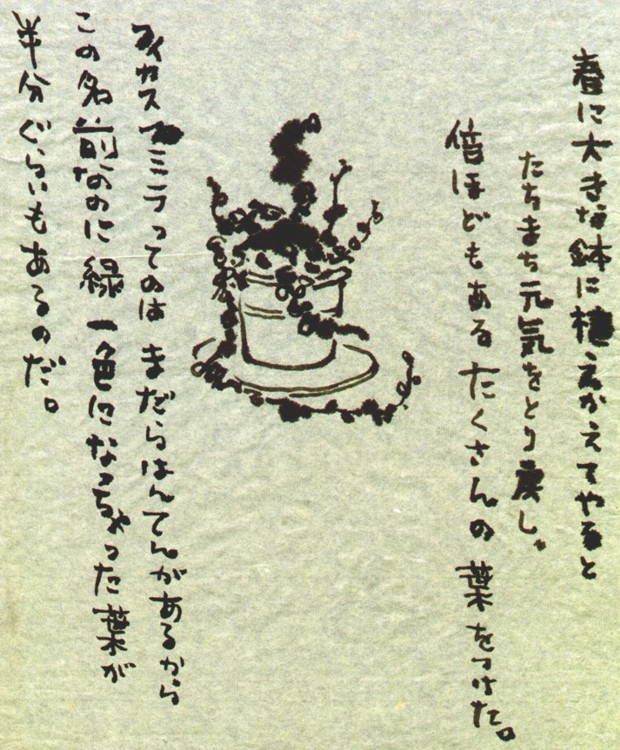 春に大きな鉢に植えかえてやると
たちまち元気をとり戻し、
倍ほどもあるたくさんの葉をつけた。
フィカスプミラってのはまだらはんてんがあるから
この名前なのに緑一色になっちゃった葉が
半分ぐらいもあるのだ。